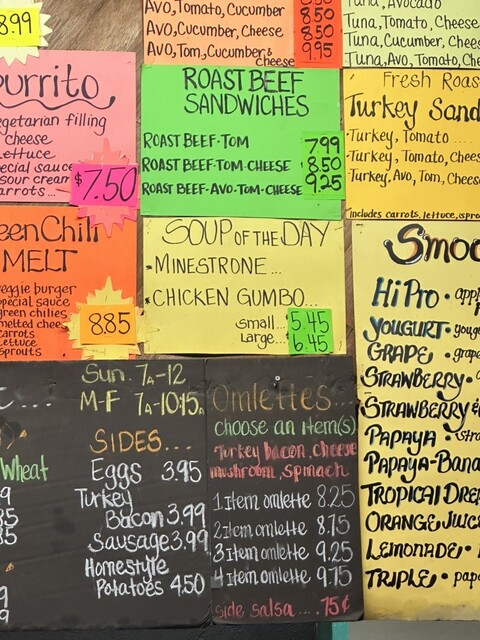 8.99
AVO, Tomato, Cucumber
AVO, Cucumber, Cheese
AVO, Tom, Cucumber, &
cheese
8.50
8.50
9.95
Tuna, Avocado
Tuna, Tomato, Cheese
Tuna, Cucumber, Chee
Tuna, Avo, Tomato, Che
urrito
egetarian filling
cheese
Lettuce
pecial sauce
sour cream
carrots...
$7.50
ROAST BEEF
SANDWICHES
ROAST BEEF-TOM 7.99
ROAST BEEF-TOM-CHEESE 8.50
ROAST BEEF-AVO-TOM-CHEESE 9.25
Fresh Roas
Turkey Sand
Turkey, Tomato ....
Turkey, Tomato, Chees
Turkey, Avo, Tom, Chees
includes carrots, lettuce, spro
een Chili
MELT
veggie burger
special sauce
green chilies
melted chee
carrots
lettuce
sprouts
8.85
SOUP OF THE DAY
• MINESTRONE...
• CHICKEN GUMBO...
small.. 5.45
Large... 6.45
Smoo
Hi Pro • appl
YOUGURT • youg
GRAPE • grape
STRAWBERRY •
STRAWBERRY &
PAPAYA • stra
PAPAYA-Bana
TROPICAL DRE
ORANGE JUIC
LEMONADE •
TRIPLE • pape
Sun. 7A-12
M-F 7A-10:15A
Wheat
SIDES...
Eggs 3.95
Turkey
Bacon 3.99
Sausage 3.99
Homestyle
Potatoes 4.50
Omlettes...
choose an item(s)
Turkey bacon, cheese
mushroom, spinach
1 Item omlette 8.25
2 Item omlette 8.75
3 Item omlette 9.25
4 Item omlette 9.75
side salsa .... .75¢